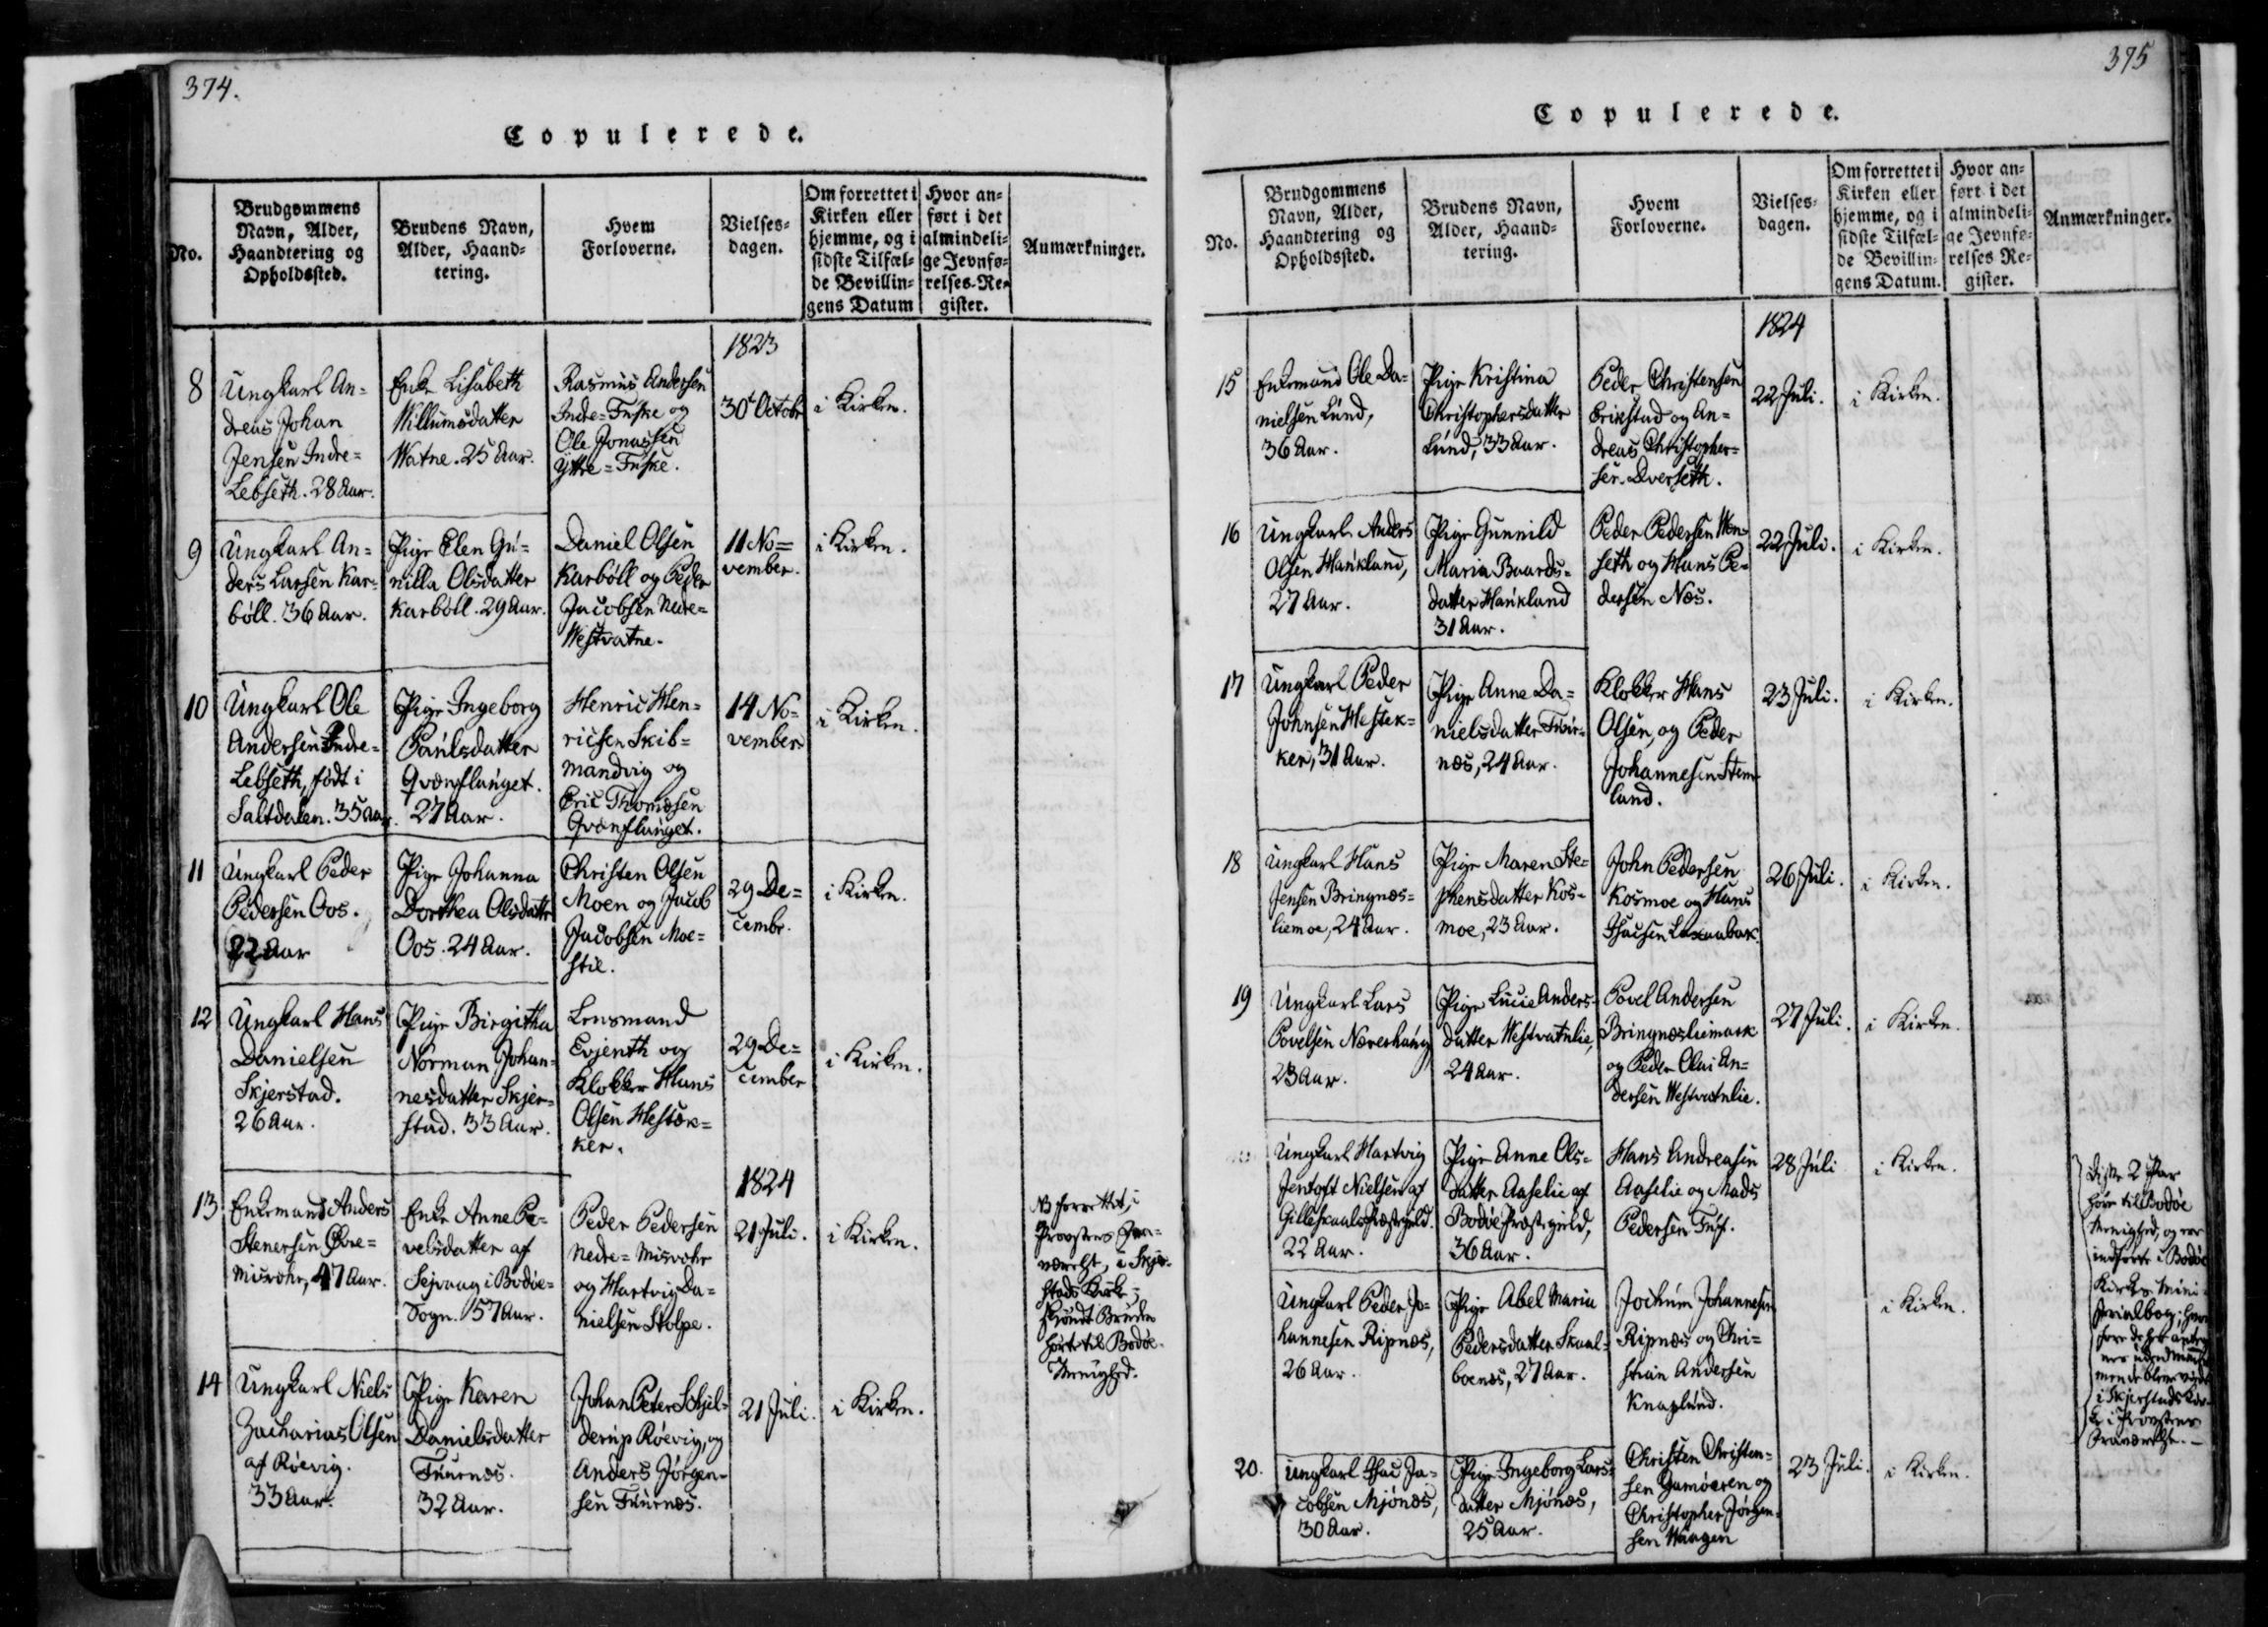 374.
Copulerede.
No.
Brudgommens
Navn, Alder,
Haandtering og
Opholdssted.
Brudens Navn,
Alder, Haand=
tering.
Hvem
Forloverne.
Vielses=
dagen.
Om forrettet i
Kirken eller
hjemme, og i
sidste Tilfæl=
de Bevillin=
gens Datum
Hvor an=
ført i det
almindeli=
ge Jevnfø=
relses-Re=
gister.
Anmærkninger.
1823
8
Ungkarl An=
dreas Johan
Jensen Indre=
Lebseth. 28 Aar.
Enke Lisabeth
Willumsdatter
Watne. 25 Aar.
Rasmus Andersen
Indre=Fuske og
Ole Jonassen
Ytre=Fuske.
30t Octobr
i Kirken.
9
Ungkarl An=
ders Larsen Kar=
böll. 36 Aar.
Pige Elen Gu=
nilla Olsdatter
Karböll. 29 Aar.
Daniel Olsen
Karböll og Peder
Jacobsen Nedre=
Westvatne.
11 No=
vember.
i Kirken.
10
Ungkarl Ole
Andersen Indre=
Lebseth, født i
Saltdalen. 35 Aar.
Pige Ingeborg
Paulsdatter
Qvænflauget.
27 Aar.
Henric Hen=
ricsen Skib=
mandvig og
Eric Thomæsen
Qvænflauget.
14 No=
vember
i Kirken.
11
Ungkarl Peder
Pedersen Oos.
22 Aar
Pige Johanna
Dorthea Olsdattr
Oos. 24 Aar.
Christen Olsen
Moen og Jacob
Jacobsen Moe=
stie.
29 De=
cembr.
i Kirken.
12
Ungkarl Hans
Danielsen
Skjerstad.
26 Aar.
Pige Birgitha
Norman Johan=
nesdatter Skjer=
stad. 33 Aar.
Lensmand
Evjenth og
Klokker Hans
Olsen Hestæk=
ker.
29 De=
cember
i Kirken.
1824
13
Enkemand Anders
Stenersen Øvre=
Misvær, 47 Aar.
Enke Anne Pe=
velsdatter af
Seivaag i Bodøe=
Sogn. 57 Aar.
Peder Pedersen
Nedre=Misvær
og Hartvig Da=
nielsen Stolpe.
21 Juli.
i Kirken.
NB forrettet, i
Provstens Fra=
værelse, i Skjer=
stads Kirke,
skjøndt Bruden
hørte til Bodøe
Menighed.
14
Ungkarl Niels
Zacharias Olsen
af Röevig.
33 Aar.
Pige Karen
Danielsdatter
Fuurnæs.
32 Aar.
Johan Peter Schjel=
derup Röevig, og
Anders Jörgen=
sen Fuurnæs.
21 Juli.
i Kirken.
375
Copulerede.
No.
Brudgommens
Navn, Alder,
Haandtering og
Opholdssted.
Brudens Navn,
Alder, Haand=
tering.
Hvem
Forloverne.
Vielses=
dagen.
Om forrettet i
Kirken eller
hjemme, og i
sidste Tilfæl=
de Bevillin=
gens Datum.
Hvor an=
ført i det
almindeli=
ge Jevnfø=
relses Re=
gister.
Anmærkninger.
1824
15
Enkemand Ole Da=
nielsen Lund,
36 Aar.
Pige Kristina
Christophersdatter
Lund, 33 Aar.
Peder Christensen
Erikstad og An=
dreas Christopher=
sen Dverseth.
22 Juli.
i Kirken.
16
Ungkarl Anders
Olsen Haukland,
27 Aar.
Pige Gunnild
Maria Baards=
datter Haukland
31 Aar.
Peder Pedersen Wen=
seth og Hans Pe=
dersen Næs.
22 Juli.
i Kirken.
17
Ungkarl Peder
Johnsen Hestek=
ker, 31 Aar.
Pige Anne Da=
nielsdatter Fuur=
næs, 24 Aar.
Klokker Hans
Olsen, og Peder
Johannesen Stem=
land.
23 Juli.
i Kirken.
18
Ungkarl Hans
Jensen Bringnæs=
liemoe, 24 Aar.
Pige Maren Ste=
phensdatter Kos=
moe, 23 Aar.
John Pedersen
Kosmoe og Hans
Isacsen
26 Juli.
i Kirken.
19
Ungkarl Lars
Povelsen Næverhaug
23 Aar.
Pige Lucie Anders=
datter Westvatnlie,
24 Aar.
Povel Andersen
Bringnæsliemark
og Peder Olai An=
dersen Westvatnlie.
27 Juli.
i Kirken.
Ungkarl Hartvig
Jentoft Nielsen af
Gilleskaals Præstegield.
22 Aar.
Pige Anne Ols=
datter Aaselie af
Bodøe Præstegield,
36 Aar.
Hans Andreasen
Aaselie og Mads
Pedersen
28 Juli
i Kirken.
Disse 2 Par
høre til Bodøe
Menighed, og ere
indførte i Bodøe
Kirkes Mini=
sterialbog;
men de bleve viede
i Skjerstads Kir=
ke i Provstens
Fraværelse.
Ungkarl Peder Jo=
hannesen Ripnæs,
26 Aar.
Pige Abel Maria
Pedersdatter Skaal=
boenæs, 27 Aar.
Jochum Johannesen
Ripnæs og Chri=
stian Andersen
Knaplund.
i Kirken.
20.
Ungkarl Isac Ja=
cobsen Mjönæs,
30 Aar.
Pige Ingeborg Lars=
datter Mjönæs,
25 Aar.
Christen Christen=
sen Gamöeren og
Christopher Jörgen=
sen Waagen
23 Juli.
i Kirken.